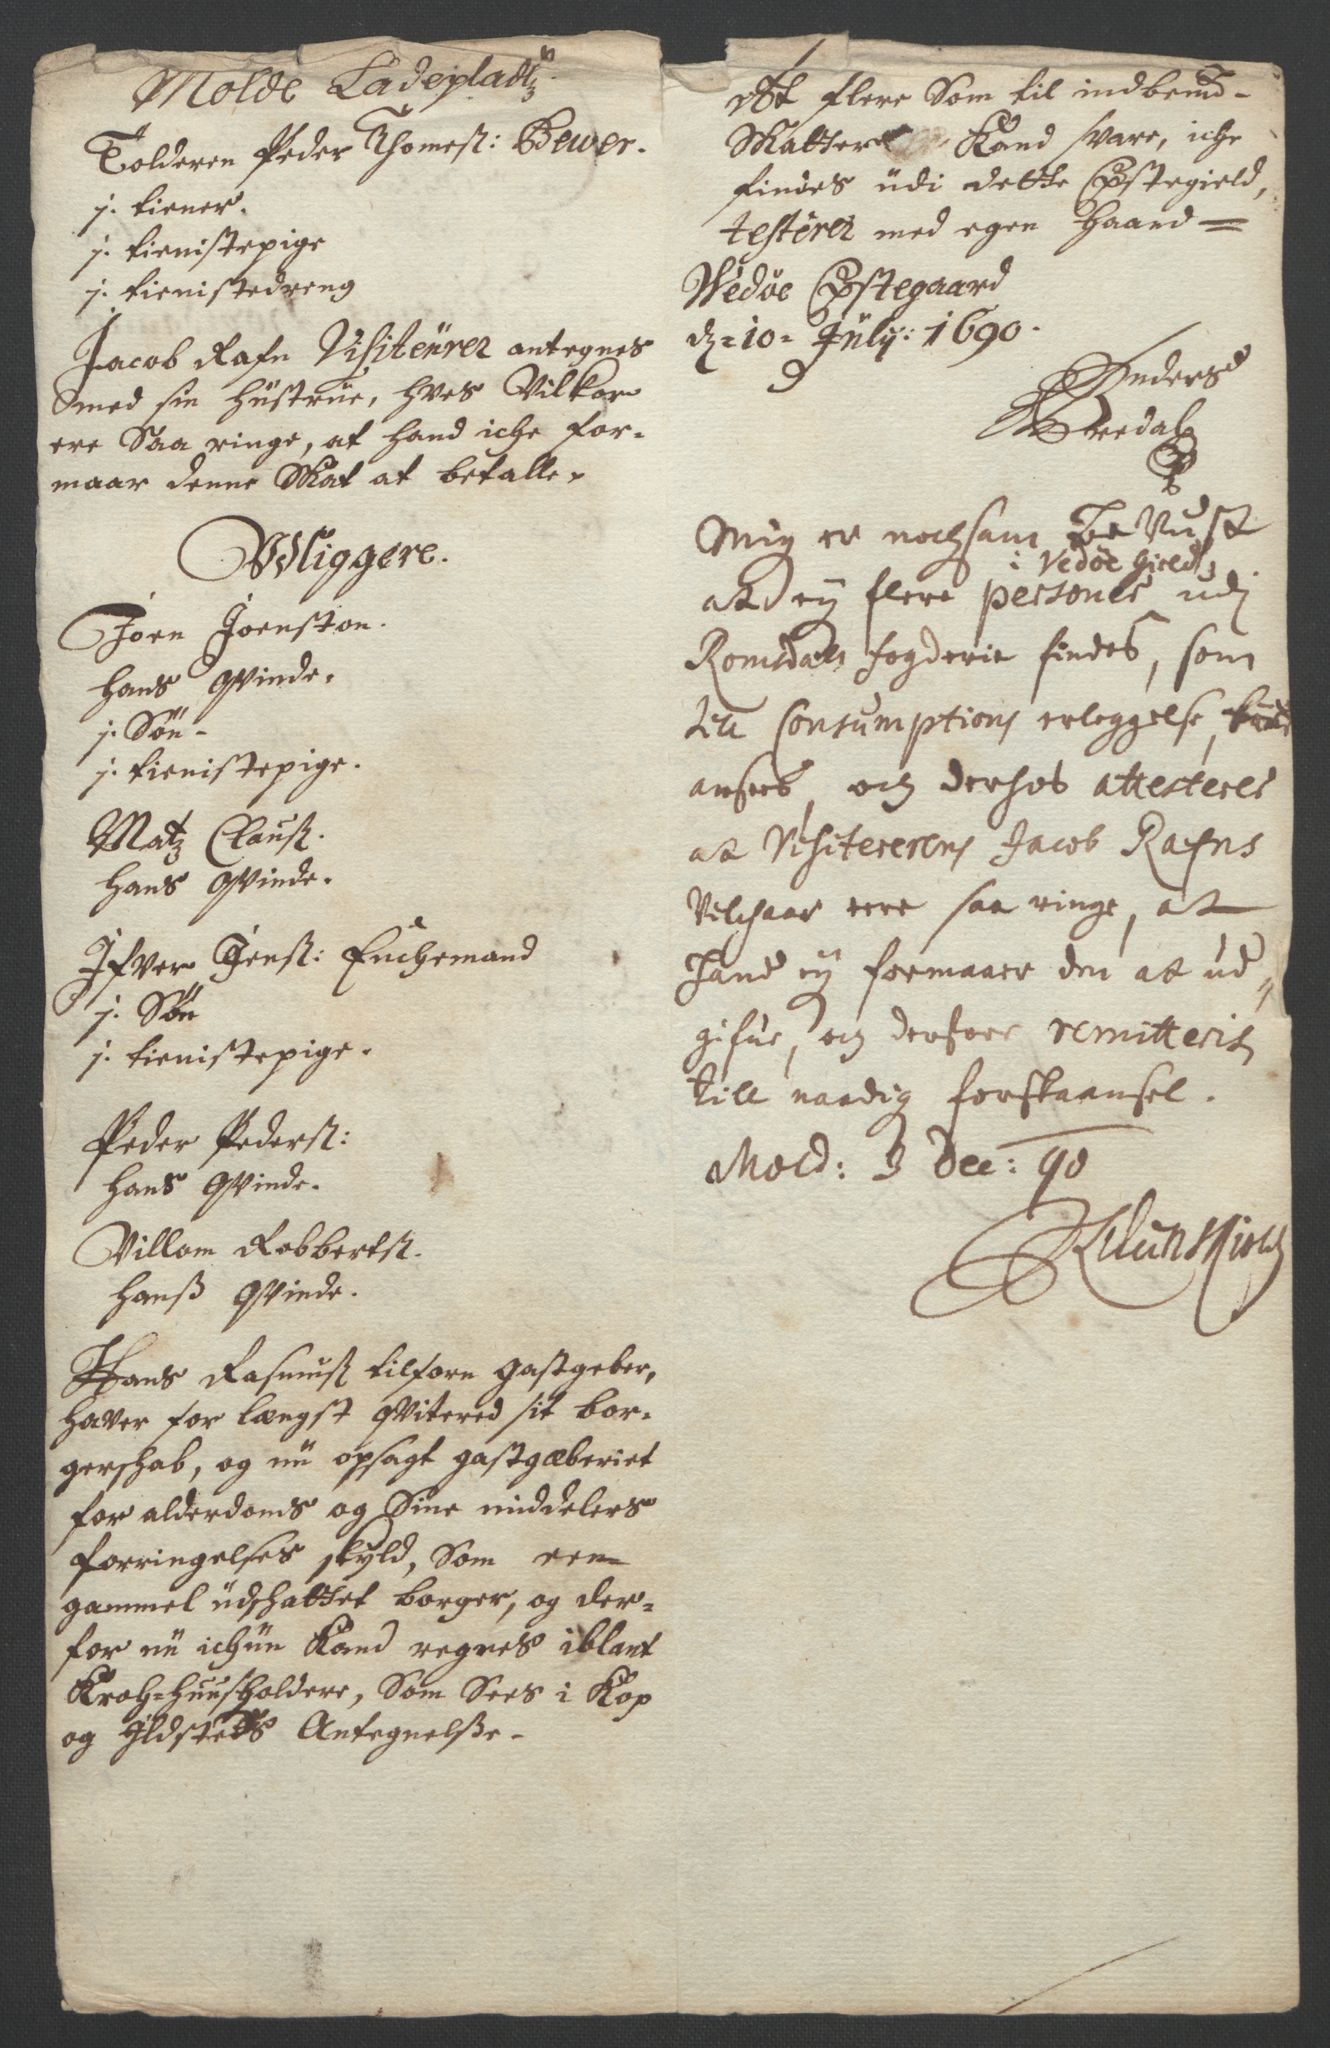 Molde Ladepladtz
Tolderen Peder Thomesß: Bewer.
j. tiener.
j. tienistepige
j. tienistedreng
Jacob Rafn Visiteurer antegnes
med sin hüstrüe, hves Vilkor
ere Saa ringe, at hand iche for-
maar denne Skat at betalle.
Wliggere.
Jörn Joenston.
hans Qvinde.
j. Sön-
j. tienistepige.
Matz Clausß.
hans Qvinde.
Ifver Jensß: Enchemand
j. Sön
j. tienistepige.
Peder Pedersß:
hans Qvinde.
Villom Robbertsß.
hanß Qvinde.
Hans Rasmusß tilforn gastgeber,
haver for længst qvitered sit bor-
gerschab, og nü opsagt gastgæberiet
for alderdoms og Sine middelers
forringelses skyld, Som een
gammel üdschattet borger, og der-
for nü ichün Kand regnes iblant
Kroh-huusholdere, Som Sees i Kop
og Ildsteds Antegnelße.
At flere Som til indbemd-
Skatter Kand svare, iche
findes üdi dette Præstegield,
testerer med egen haand
Wedöe Præstegaard
dß-10-July: 1690.
Anders
Bredal
Mig er nochsam bevust
i Vedöe Gield
at ey flere personer udj
Romsdals fogderie findes, som
till Consumptions erleggelse, kand
ansees, och derhos attesteres
at Visitererens Jacob Rafns
Velchaar eere saa ringe, at
hand ey formaaer den at ud-
gifue, och derfoer remitteris
till naadig forskaansel.
Mold: 3 Dec: 90